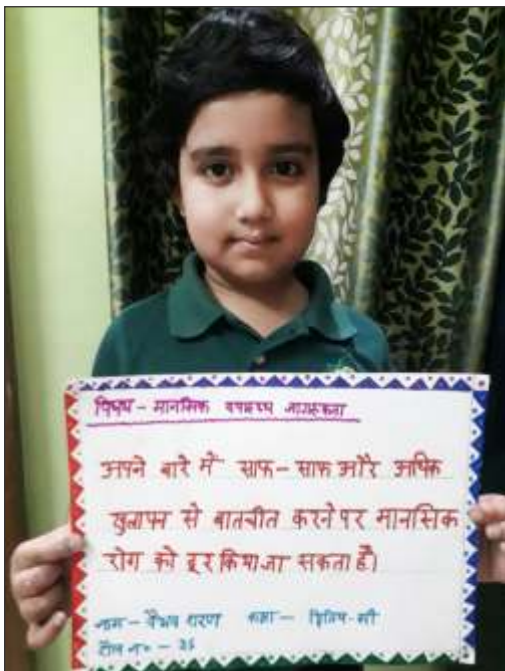 विषय - मानसिक स्वास्थ्य जागरूकता
अपने बारे में साफ-साफ और अधिक
खुलापन से बातचीत करने पर मानसिक
रोग को दूर किया जा सकता है।
नाम - वैभव शरण कक्षा - द्वितीय-सी
रोल नं० - 35